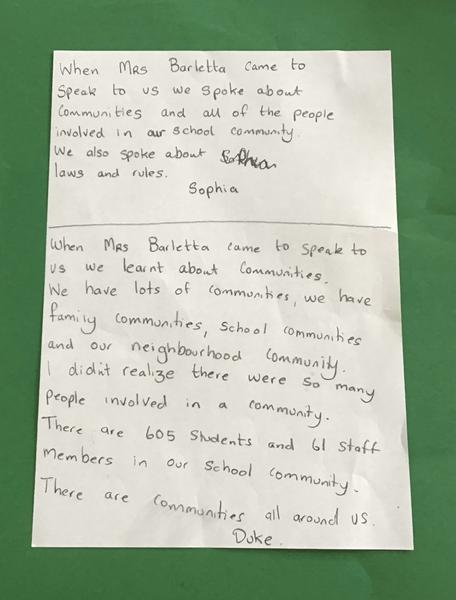 When Mrs Barletta came to
speak to us we spoke about
Communities and all of the people
involved in our school community.
We also spoke about
laws and rules.
Sophia
When Mrs Barletta came to speak to
us we learnt about Communities.
We have lots of communities, we have
family communities, school communities
and our neighbourhood community.
I didn't realize there were so many
people involved in a community.
There are 605 students and 61 staff
members in our school community.
There are communities all around us.
Duke.